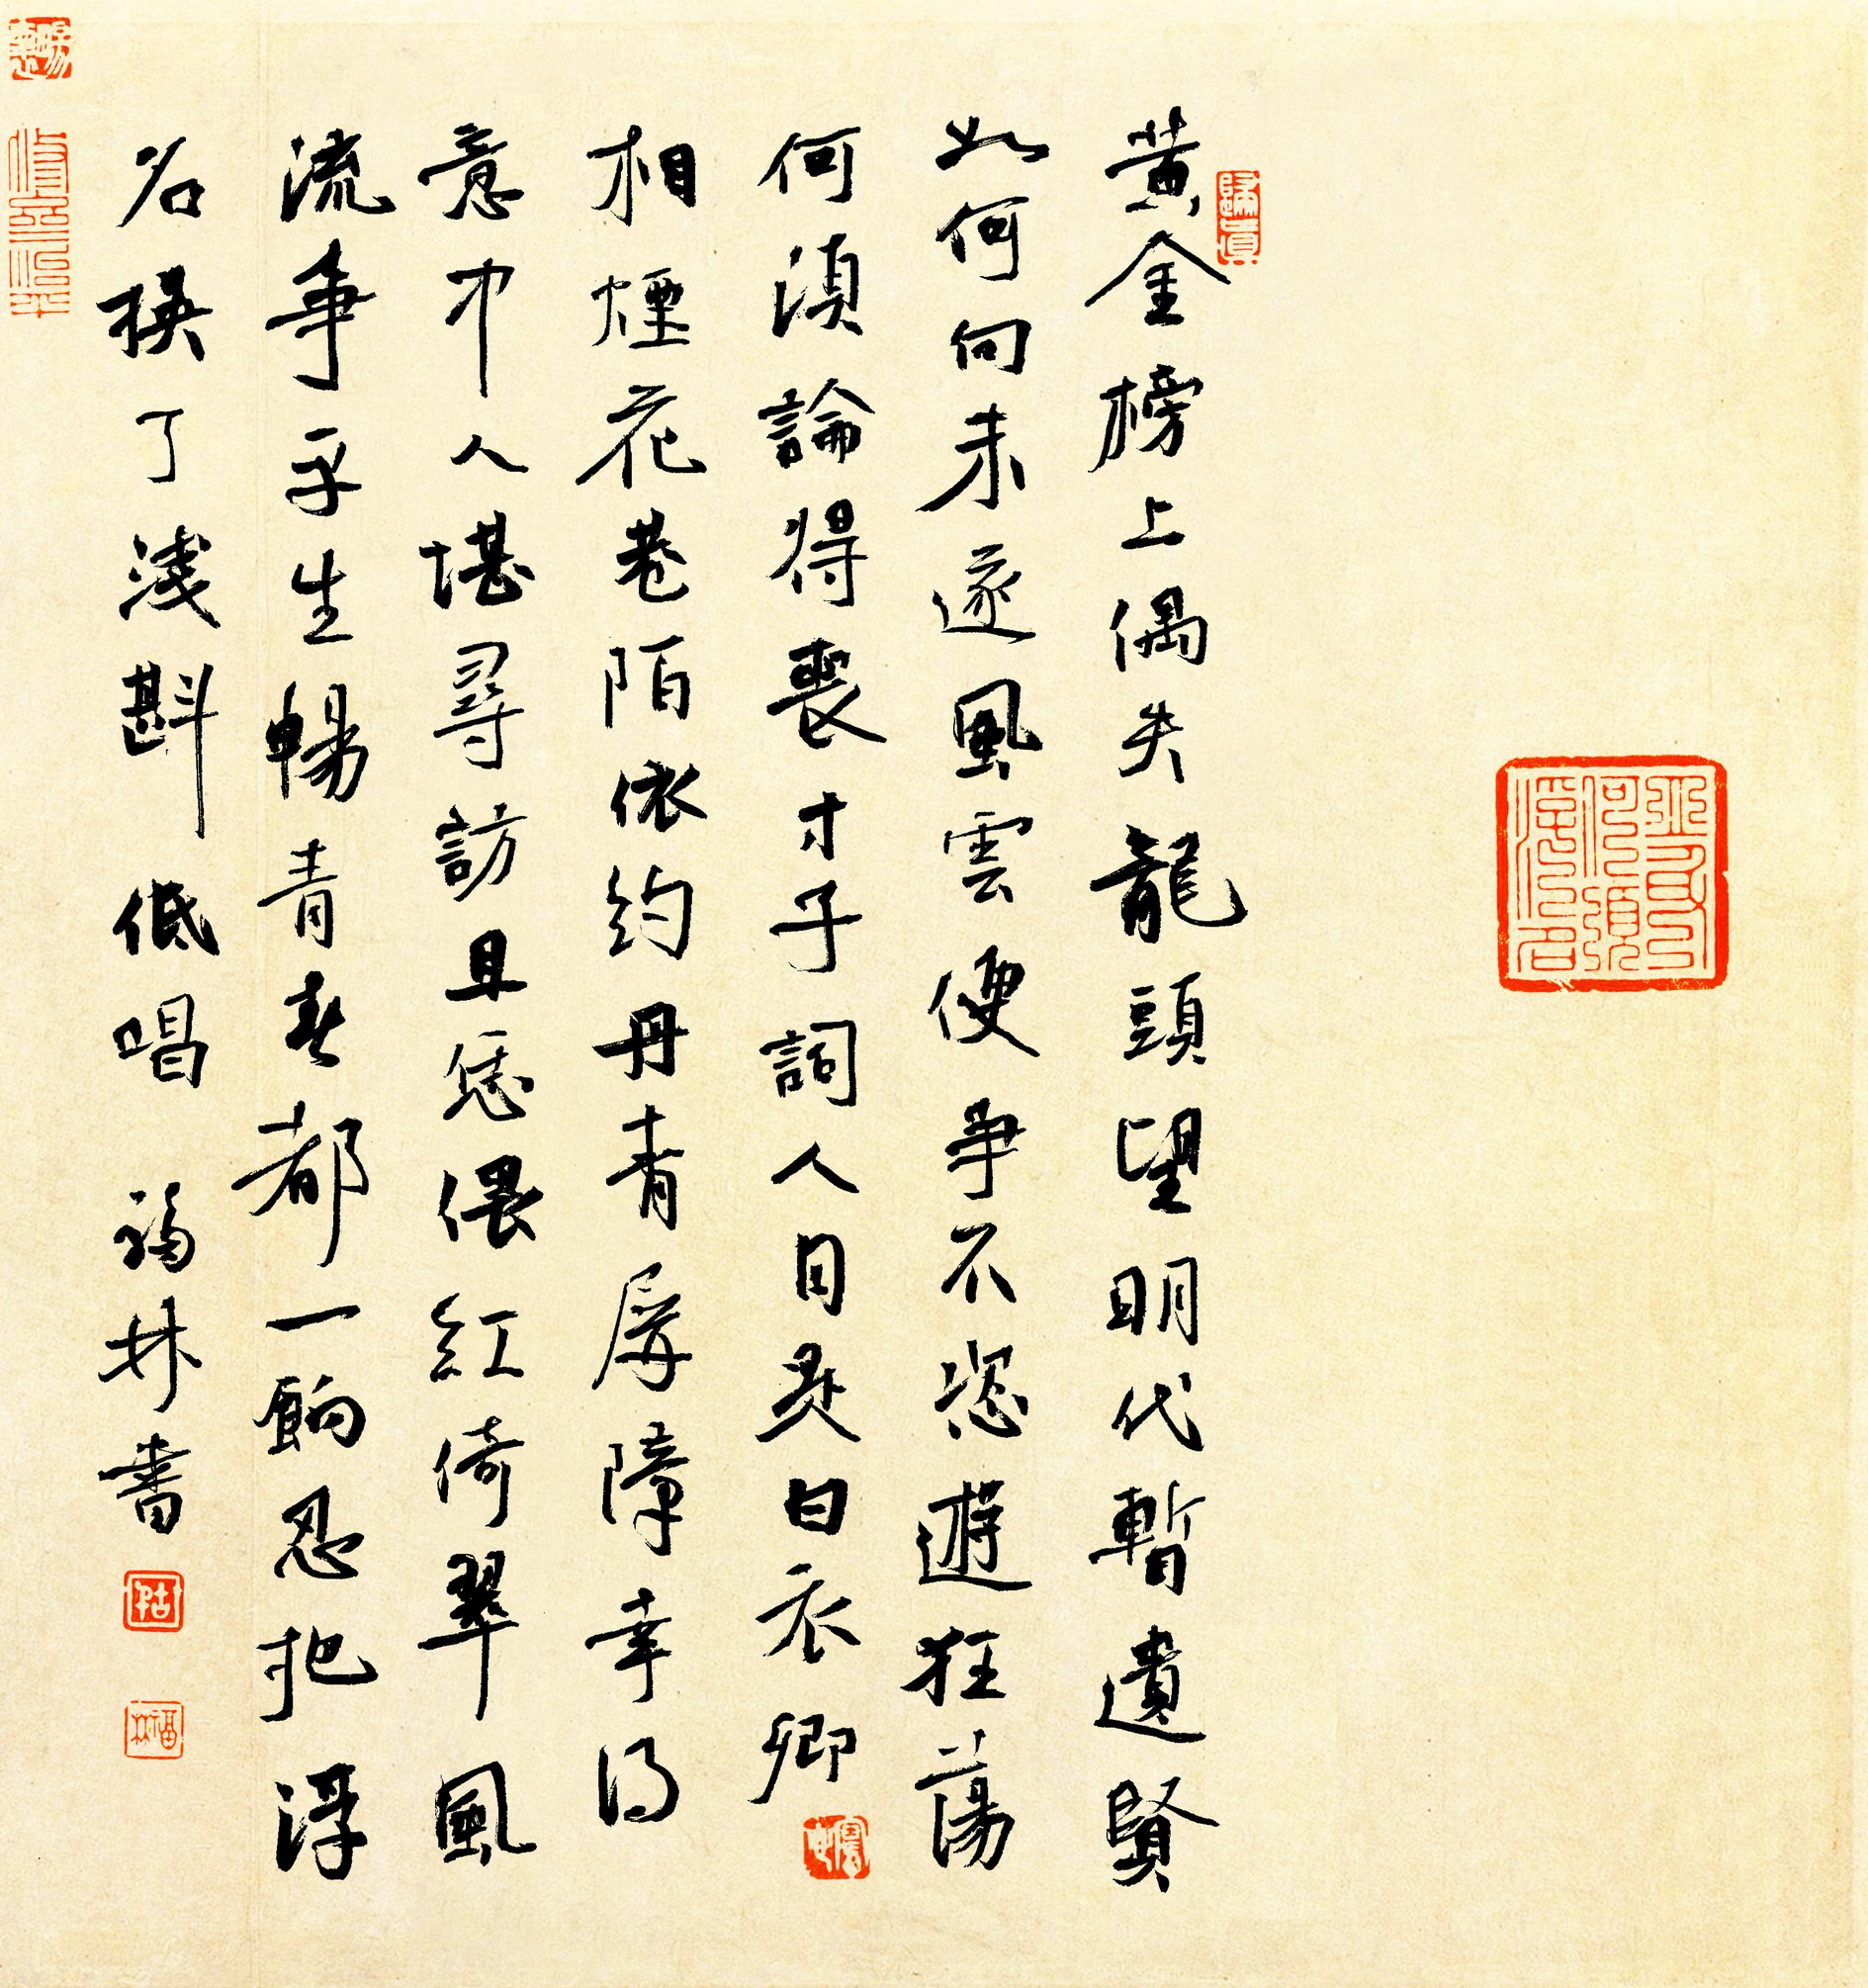 黃金榜上偶失龍頭望明代暫遺賢
如何向未遂風雲便爭不恣遊狂蕩
何須論得喪才子詞人自是白衣卿
相煙花巷陌依約丹青屏障幸得
意中人堪尋訪且恁偎紅倚翠風
流事平生暢青春都一餉忍把浮
名換了淺斟低唱 福林書
歸真
福林